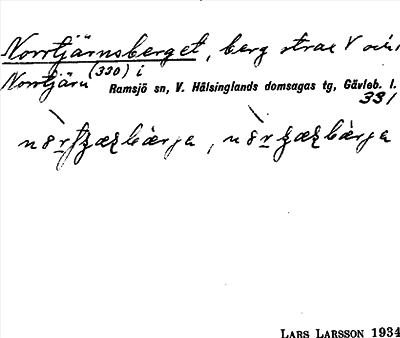 Norrtjärnsberget, berg strax V om
Norrtjärn (330) i
Ramsjö sn, V. Hälsinglands domsagas tg, Gävleb. l.
331
LARS LARSSON 1934